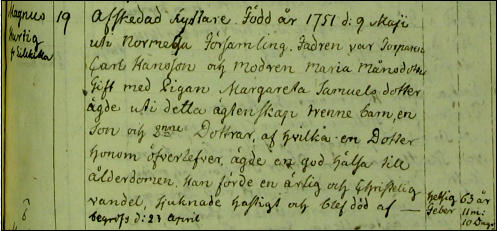 Magnus
Hurtig
19
Afskedad Ryttare. Född år 1751 d: 9 Maji
uti Normesla Församling. Fadren var
Carl Hansson och Modren Maria Månsdotter
Gift med Pigan Margareta Samuels dotter
ägde uti detta ägtenskap trenne barn, en
Son och 2nne Dottrar, af hvilka en Dotter
honom öfverlefver, ägde en god hälsa till
ålderdomen. Han förde en ärlig och Christelig
vandel, sjuknade hastigt och blef död af —
begrofs d: 23 April
Hetsig
Feber
63 år
11 m:
10 Dagar